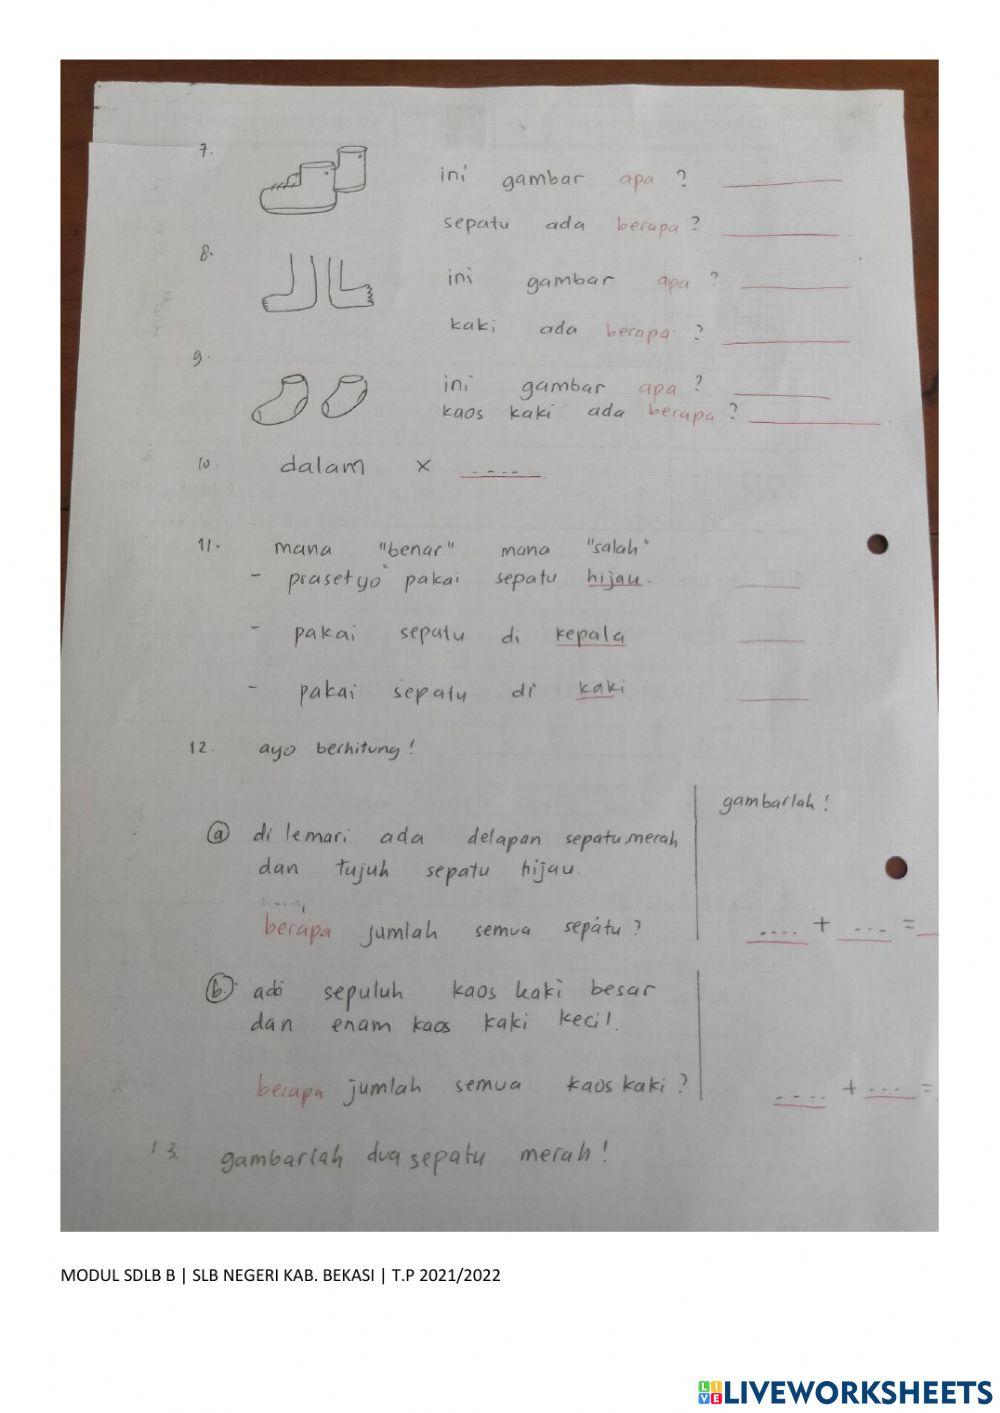 7.
ini gambar apa ? ________
sepatu ada berapa ? ________
8.
ini gambar apa ? ________
kaki ada berapa ? ________
9.
ini gambar apa ? ________
kaos kaki ada berapa ? ________
10. dalam x ....
11. mana "benar" mana "salah"
- prasetyo pakai sepatu hijau. ____
- pakai sepatu di kepala ____
- pakai sepatu di kaki ____
12. ayo berhitung!
gambarlah!
(a) di lemari ada delapan sepatu merah
dan tujuh sepatu hijau.
berapa jumlah semua sepatu ? .... + ... = _
(b.) ada sepuluh kaos kaki besar
dan enam kaos kaki kecil.
berapa jumlah semua kaos kaki ? .... + ... =
13. gambarlah dua sepatu merah!
MODUL SDLB B | SLB NEGERI KAB. BEKASI | T.P 2021/2022
LIVE LIVEWORKSHEETS